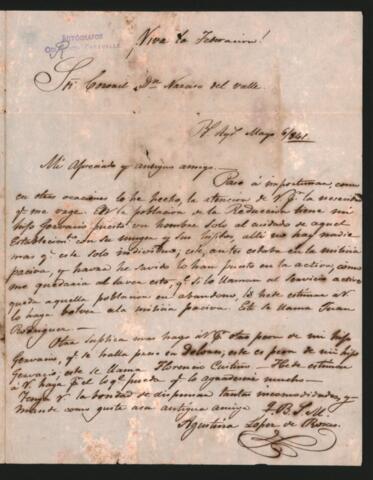 AUTÓGRAFOS
¡Viva la Federacion!
Sr. Coronel Dn Narciso del Valle
Bs Ays Mayo 6/841
Mi Apreciado y antiguo amigo
Paso á importunar, como
en otras ocaciones lo he hecho, la atencion de V.
me oiga. En la poblacion de la Reduccion tiene mi
hijo Gervacio puesto un hombre solo al cuidado de aquel
Establecimto con su muger y sus hijitos, alli no hay nadie
mas qe este solo individuo; este, antes estaba en la milicia
paciva, y haora he savido lo han puesto en la activa, como
me quedaria al ver esto, qe si lo llaman al Servicio activo
queda aquella poblacion en abandono, lo hede estimar á V
lo haga bolver á la milicia paciva. Este se llama Juan
Rodriguez
Otra suplica mas hago á V. otro peon de mi hijo
Gervacio, qe se halla preso en Dolores, este es peon de mi hijo
Gervacio, este se llama Florencio Hede estimar
á V haga pr el loqe pueda y lo agradeceré mucho
Tenga V. la bondad de dispensar tantas incomodidades, y
mande como guste asu antigua amiga Q. B. S. M.
Agustina Lopez de Rosas